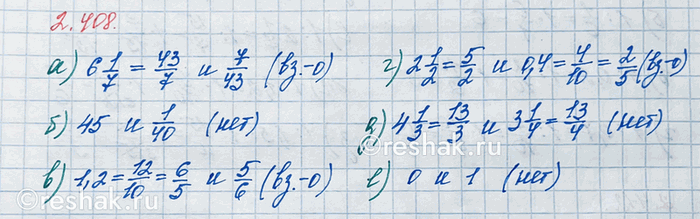 2.408.
а) 6 1/7 = 43/7 и 7/43 (вз.-о)
б) 45 и 1/40 (нет)
в) 1,2 = 12/10 = 6/5 и 5/6 (вз.-о)
г) 2 1/2 = 5/2 и 0,4 = 4/10 = 2/5 (вз.-о)
д) 4 1/3 = 13/3 и 3 1/4 = 13/4 (нет)
е) 0 и 1 (нет)
reshak.ru